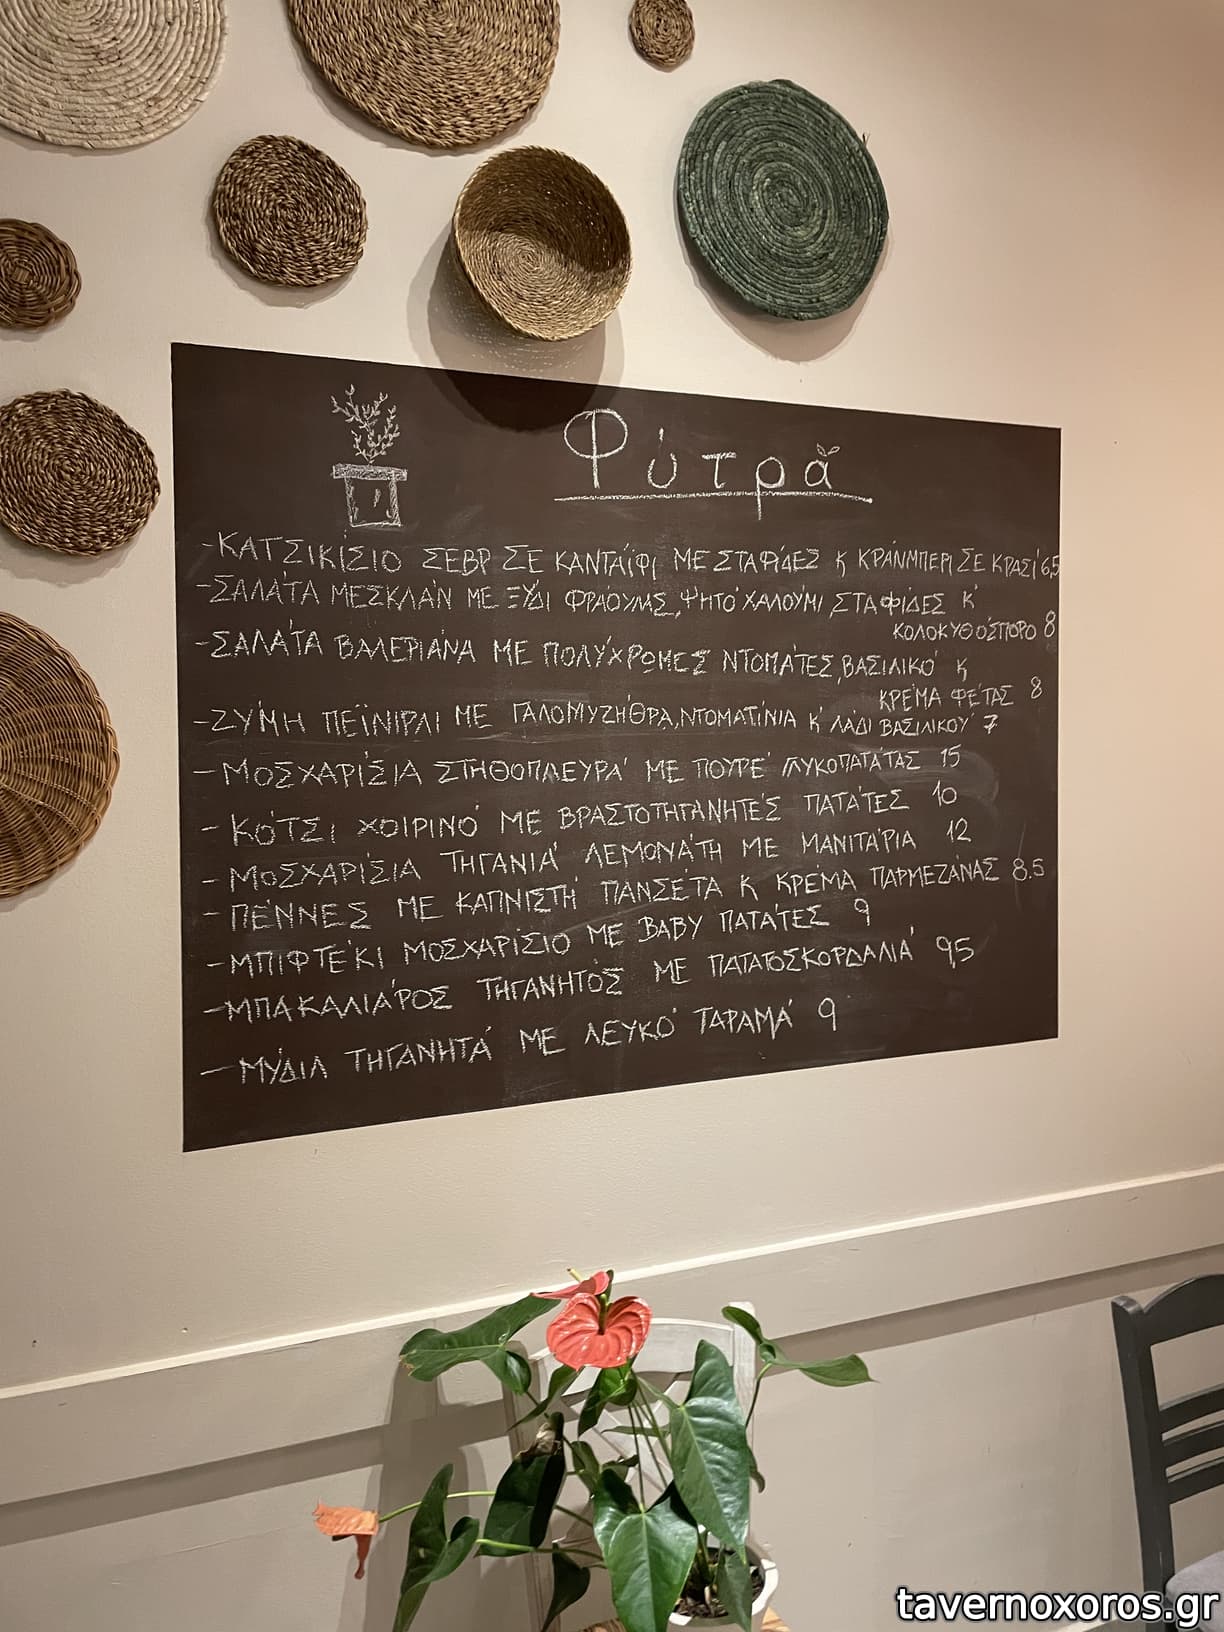 Φύτρα
-ΚΑΤΣΙΚΙΣΙΟ ΣΕΒΡ ΣΕ ΚΑΝΤΑΪΦΙ ΜΕ ΣΤΑΦΙΔΕΣ Κ ΚΡΑΝΜΠΕΡΙ ΣΕ ΚΡΑΣΙ 6,5
-ΣΑΛΑΤΑ ΜΕΣΚΛΑΝ ΜΕ ΞΥΔΙ ΦΡΑΟΥΛΑΣ, ΨΗΤΟ ΧΑΛΟΥΜΙ, ΣΤΑΦΙΔΕΣ Κ
ΚΟΛΟΚΥΘΟΣΠΟΡΟ 8
-ΣΑΛΑΤΑ ΒΑΛΕΡΙΑΝΑ ΜΕ ΠΟΛΥΧΡΩΜΕΣ ΝΤΟΜΑΤΕΣ, ΒΑΣΙΛΙΚΟ Κ
ΚΡΕΜΑ ΦΕΤΑΣ 8
-ΖΥΜΗ ΠΕΪΝΙΡΛΙ ΜΕ ΓΑΛΟΜΥΖΗΘΡΑ, ΝΤΟΜΑΤΙΝΙΑ Κ ΛΑΔΙ ΒΑΣΙΛΙΚΟΥ 7
-ΜΟΣΧΑΡΙΣΙΑ ΣΤΗΘΟΠΛΕΥΡΑ ΜΕ ΠΟΥΡΕ ΓΛΥΚΟΠΑΤΑΤΑΣ 15
-ΚΟΤΣΙ ΧΟΙΡΙΝΟ ΜΕ ΒΡΑΣΤΟΤΗΓΑΝΗΤΕΣ ΠΑΤΑΤΕΣ 10
-ΜΟΣΧΑΡΙΣΙΑ ΤΗΓΑΝΙΑ ΛΕΜΟΝΑΤΗ ΜΕ ΜΑΝΙΤΑΡΙΑ 12
-ΠΕΝΝΕΣ ΜΕ ΚΑΠΝΙΣΤΗ ΠΑΝΣΕΤΑ Κ ΚΡΕΜΑ ΠΑΡΜΕΖΑΝΑΣ 8.5
-ΜΠΙΦΤΕΚΙ ΜΟΣΧΑΡΙΣΙΟ ΜΕ BABY ΠΑΤΑΤΕΣ 9
-ΜΠΑΚΑΛΙΑΡΟΣ ΤΗΓΑΝΗΤΟΣ ΜΕ ΠΑΤΑΤΟΣΚΟΡΔΑΛΙΑ 9,5
-ΜΥΔΙΑ ΤΗΓΑΝΗΤΑ ΜΕ ΛΕΥΚΟ ΤΑΡΑΜΑ 9
tavernoxoros.gr